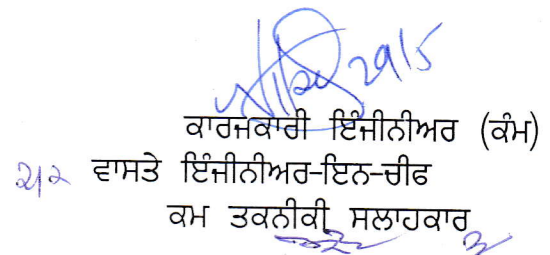 29/5
ਕਾਰਜਕਾਰੀ ਇੰਜੀਨੀਅਰ (ਕੰਮ)
ਵਾਸਤੇ ਇੰਜੀਨੀਅਰ-ਇਨ-ਚੀਫ
ਕਮ ਤਕਨੀਕੀ ਸਲਾਹਕਾਰ